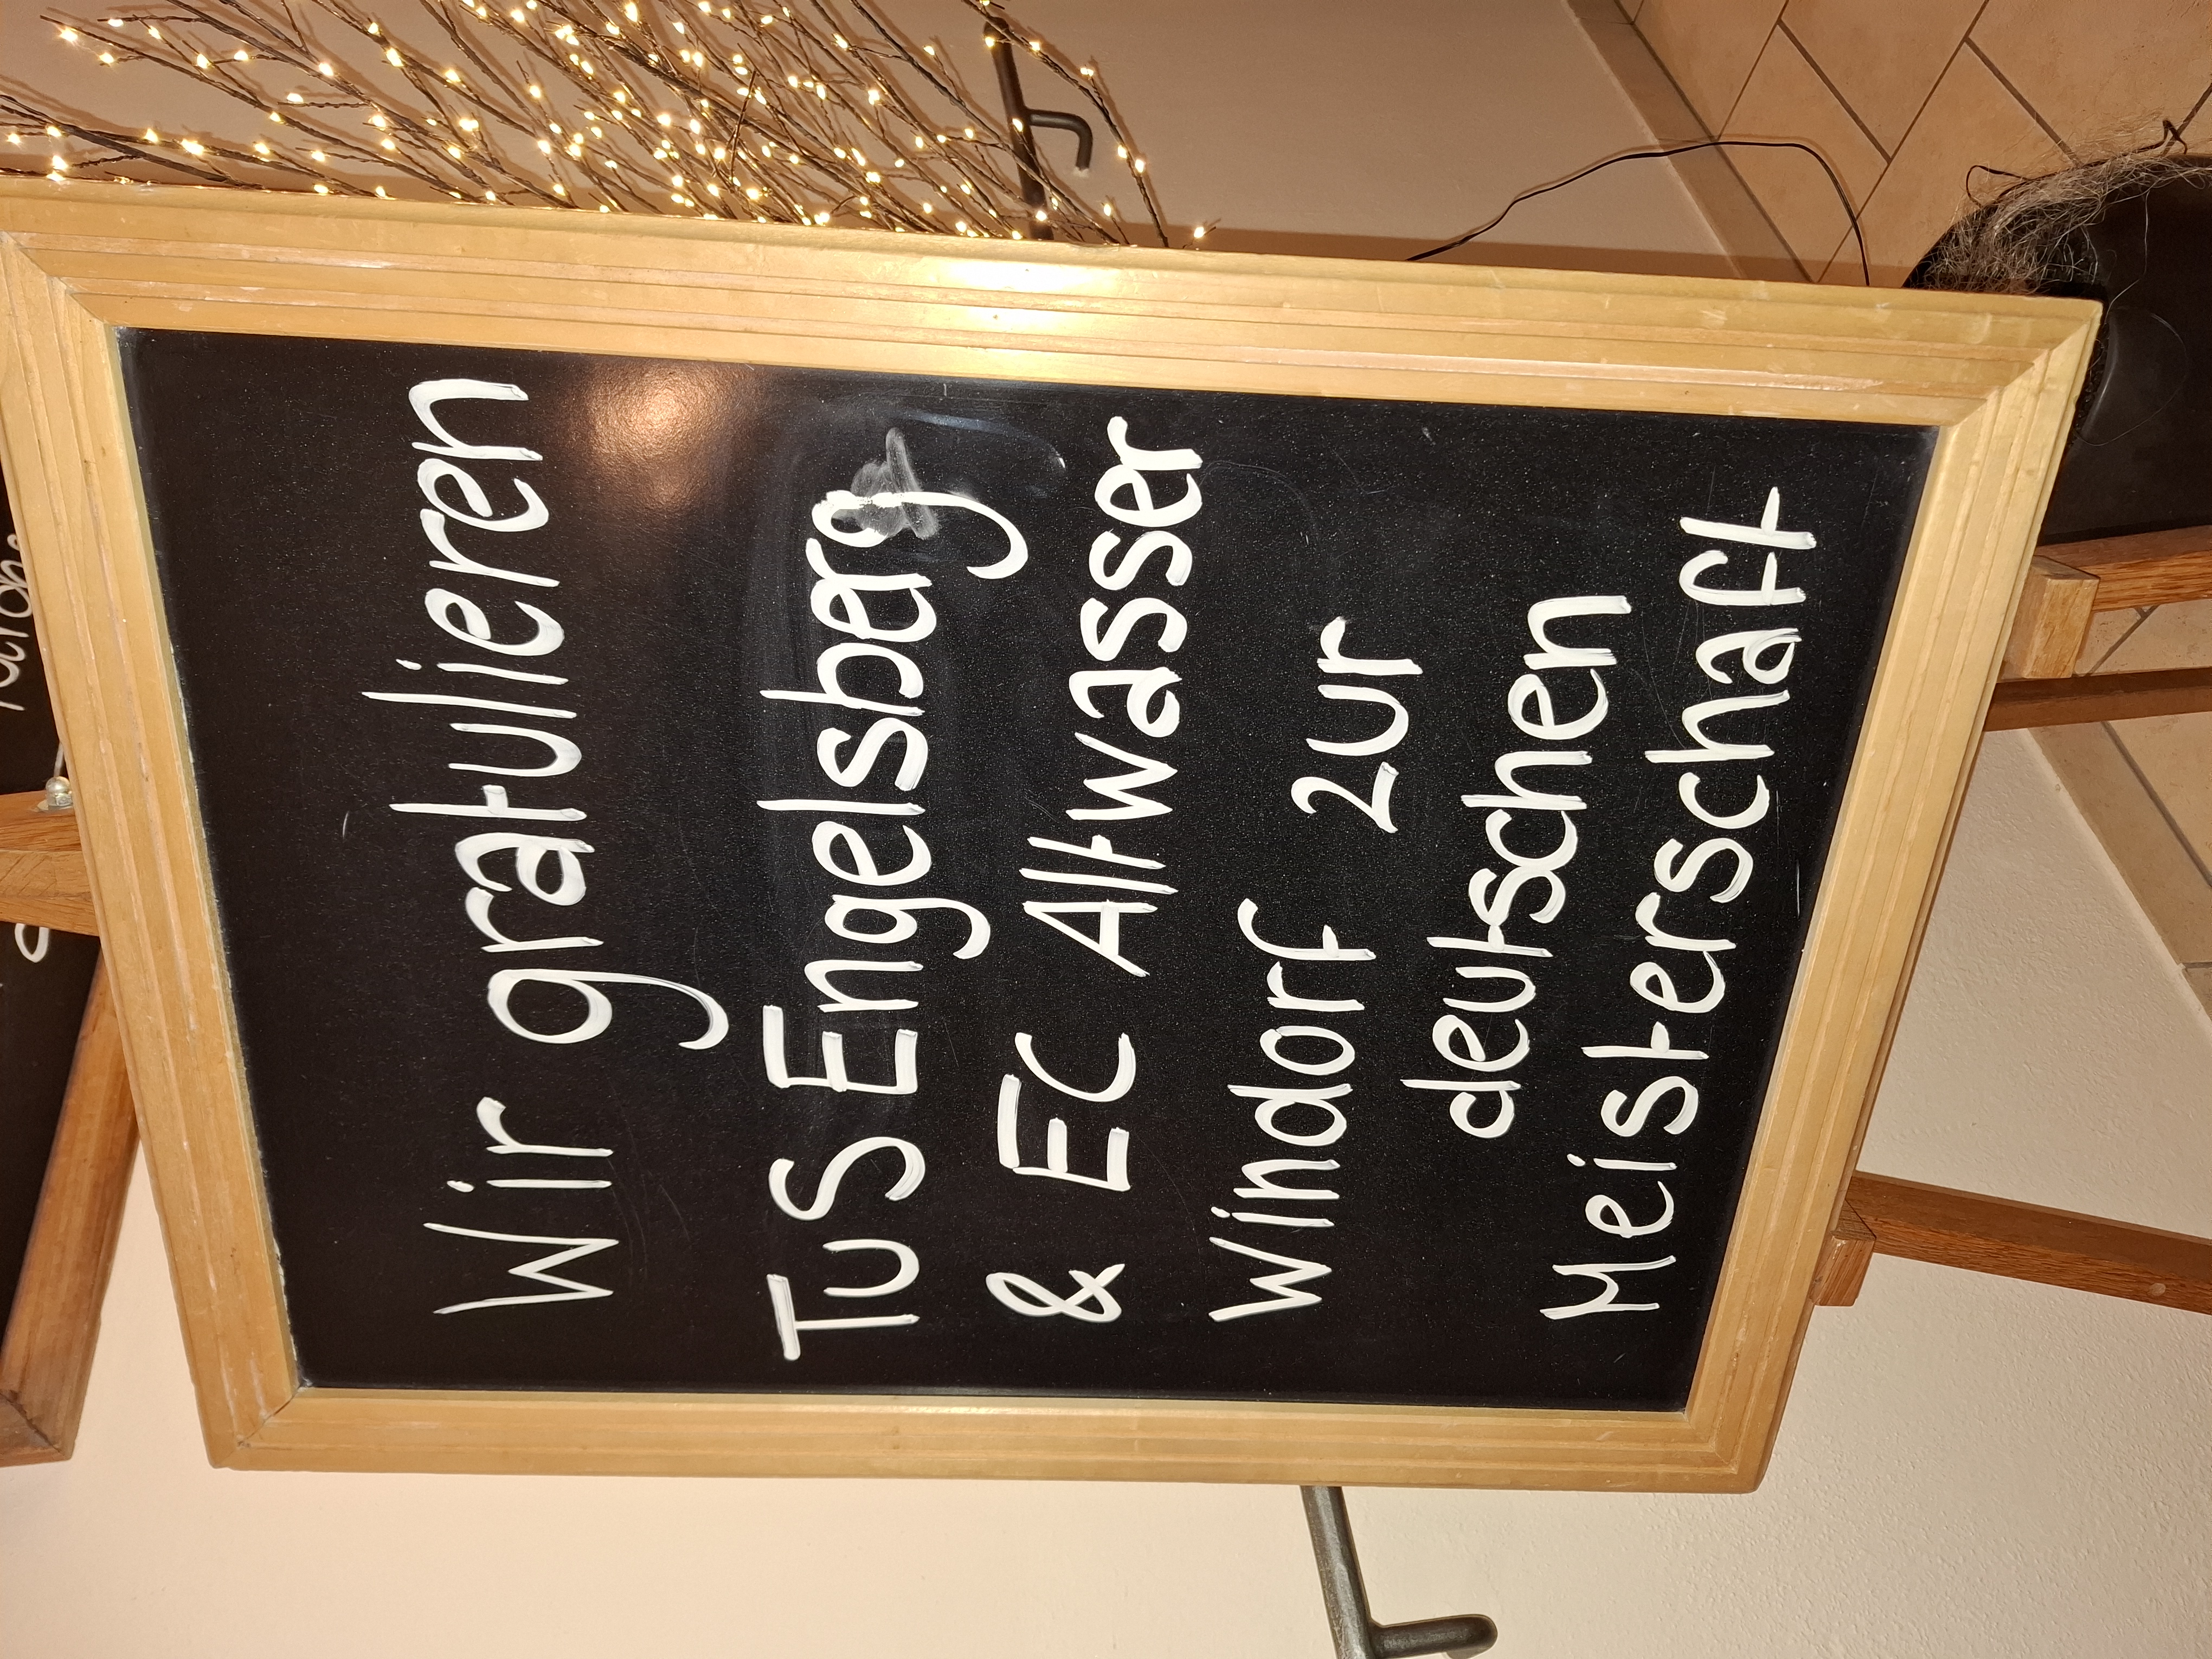 Wir gratulieren
TuS Engelsberg
& EC Altwasser
Windorf zur
deutschen
Meisterschaft